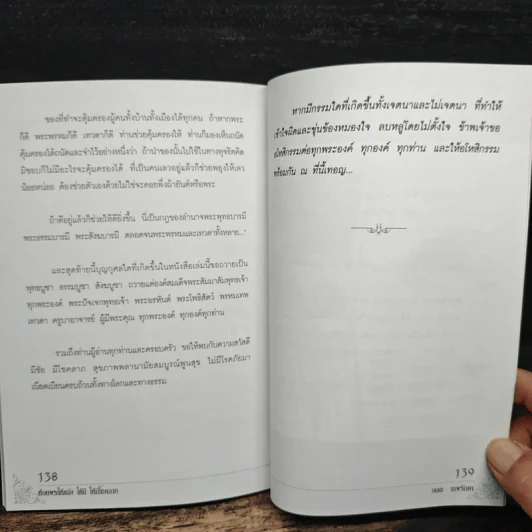 ของที่ทำจะคุ้มครองผู้คนทั้งบ้านทั้งเมืองได้ทุกคน ถ้าหากพระ
ก็ดี พระพรหมก็ดี เทวดาก็ดี ท่านช่วยคุ้มครองให้ ท่านก็มองเห็นถนัด
คุ้มครองได้ถนัดและจำไว้อย่างหนึ่งว่า ถ้านำของนั้นไปใช้ในทางทุจริตผิด
มิชอบก็ไม่มีอะไรจะคุ้มครองได้ ที่เป็นคนเลวอยู่แล้วก็ช่วยพยุงให้เลว
น้อยหน่อย ต้องช่วยตัวเองด้วยไม่ใช่จะคอยพึ่งผ้ายันต์หรือพระ
ถ้าดีอยู่แล้วก็ช่วยให้ดียิ่งขึ้น นี่เป็นกฎของอำนาจพระพุทธบารมี
พระธรรมบารมี พระสังฆบารมี ตลอดจนพระพรหมและเทวดาทั้งหลาย..."
และสุดท้ายนี้บุญกุศลใดที่เกิดขึ้นในหนังสือเล่มนี้ขอถวายเป็น
พุทธบูชา ธรรมบูชา สังฆบูชา ถวายแด่องค์สมเด็จพระสัมมาสัมพุทธเจ้า
ทุกพระองค์ พระปัจเจกพุทธเจ้า พระอรหันต์ พระโพธิสัตว์ พรหมเทพ
เทวดา ครูบาอาจารย์ ผู้มีพระคุณ ทุกพระองค์ ทุกองค์ทุกท่าน
รวมถึงท่านผู้อ่านทุกท่านและครอบครัว ขอให้พบกับความสวัสดี
มีชัย มีโชคลาภ สุขภาพพลานามัยสมบูรณ์พูนสุข ไม่มีโรคภัยมา
เบียดเบียนครบถ้วนทั้งทางโลกและทางธรรม
138
หากมีกรรมใดที่เกิดขึ้นทั้งเจตนาและไม่เจตนา ที่ทำให้
เข้าใจผิดและขุ่นข้องหมองใจ ลบหลู่โดยไม่ตั้งใจ ข้าพเจ้าขอ
อโหสิกรรมต่อทุกพระองค์ ทุกองค์ ทุกท่าน และให้อโหสิกรรม
พร้อมกัน ณ ที่นี้เทอญ...
139